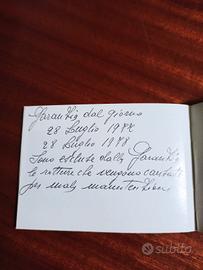 Garanzia dal giorno
28 Luglio 1977
28 Luglio 1978
Sono escluse dalla Garanzia
le rotture che vengono causate
per mala manutenzione
subito